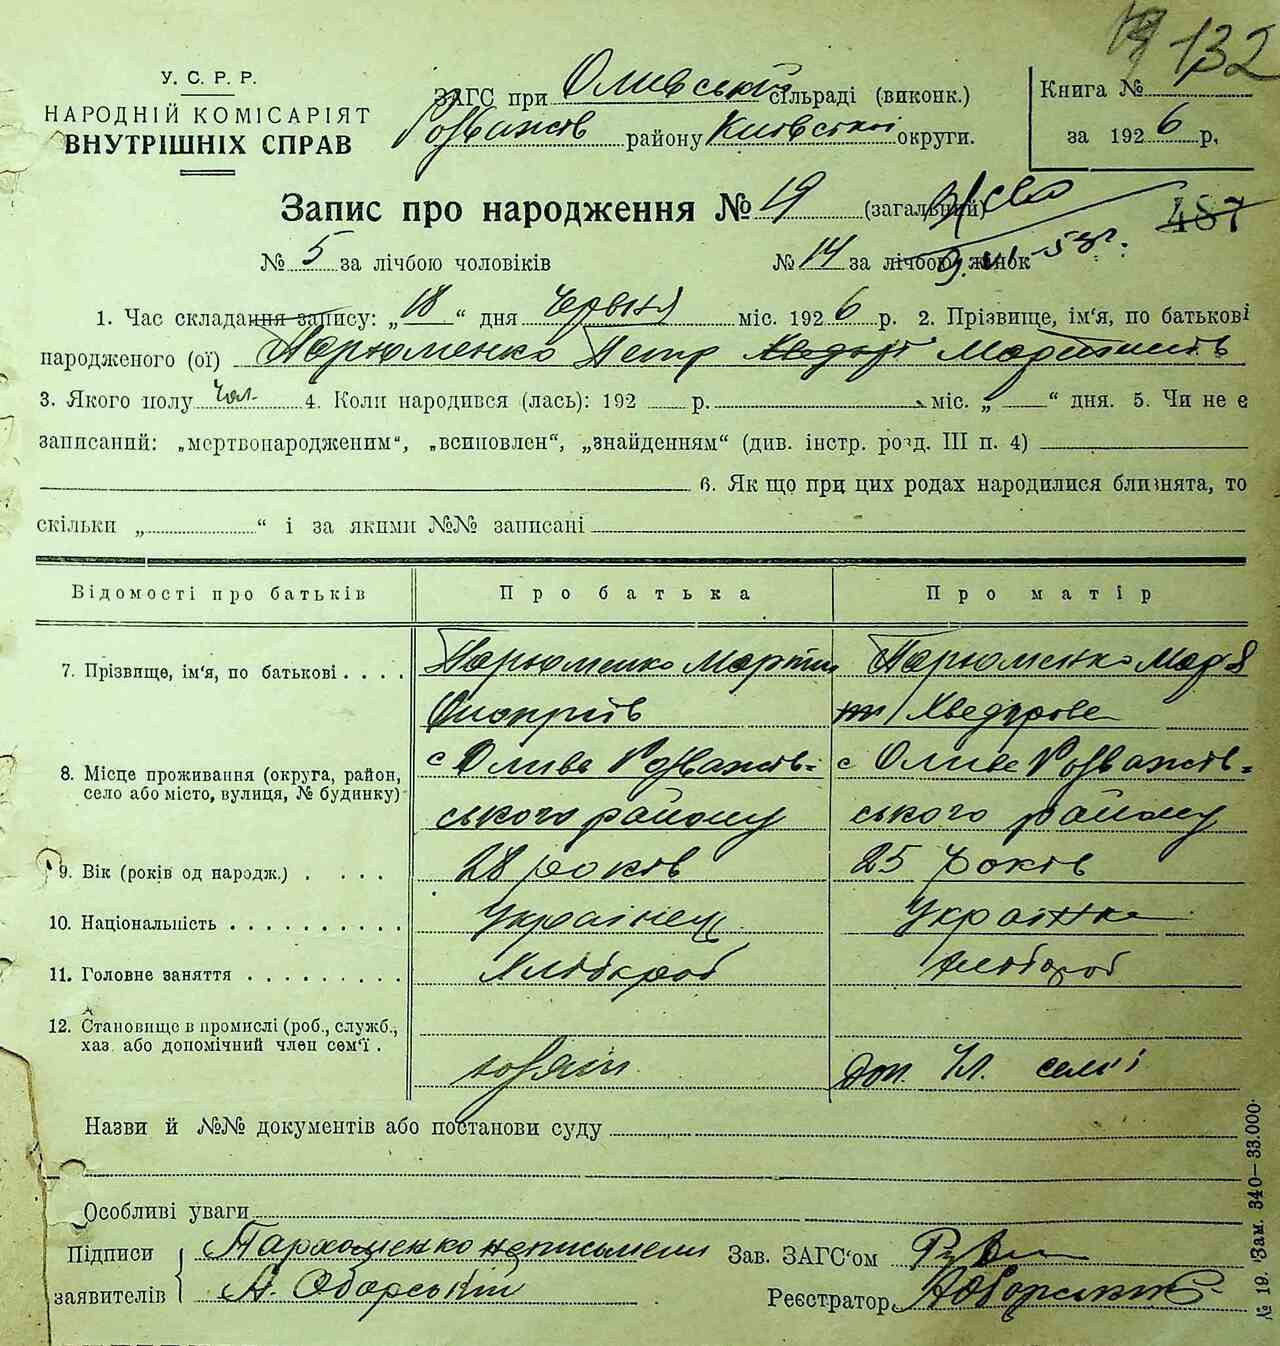 132
У. С. Р. Р.
НАРОДНІЙ КОМІСАРІЯТ
ВНУТРІШНІХ СПРАВ
ЗАГС при Оливській сільраді (виконк.)
Розважів району Київської округи.
Книга №
за 1926 р.
Запис про народження № 19 (загальний)
487
№ 5 за лічбою чоловіків № 14 за лічбою жінок
1. Час складання запису: „18“ дня Червня міс. 1926 р. 2. Прізвище, ім'я, по батькові
народженого (ої) Пархоменко Петр Хведор Мартинів
3. Якого полу чол. 4. Коли народився (лась): 192 р. міс. „ “ дня. 5. Чи не є
записаний: „мертвонародженим“, „всиновлен“, „знайденням“ (див. інстр. розд. III п. 4)
6. Як що при цих родах народилися близнята, то
скільки „ “ і за якими №№ записані
Відомості про батьків Про батька Про матір
7. Прізвище, ім'я, по батькові . . . . Пархоменко Мартин Пархоменко
Хведорове
8. Місце проживання (округа, район, с Олива Розважів- с Олива Розважів-
село або місто, вулиця, № будинку) ського району ського району
9. Вік (років од народж.) . . . . 28 років 25 років
10. Національність . . . . . . . . . . Українец Українка
11. Головне заняття . . . . . . . . . Хлібороб хлібороб
12. Становище в промислі (роб., служб.,
хаз або допомічний член сем'ї . хозяїн доп. чл. семії
Назви й №№ документів або постанови суду
Особливі уваги
Підписи Пархоменко неписьмени Зав. ЗАГС'ом
заявителів А. Оборський Реєстратор АОборський
№ 19. Зам. 340—33.000.